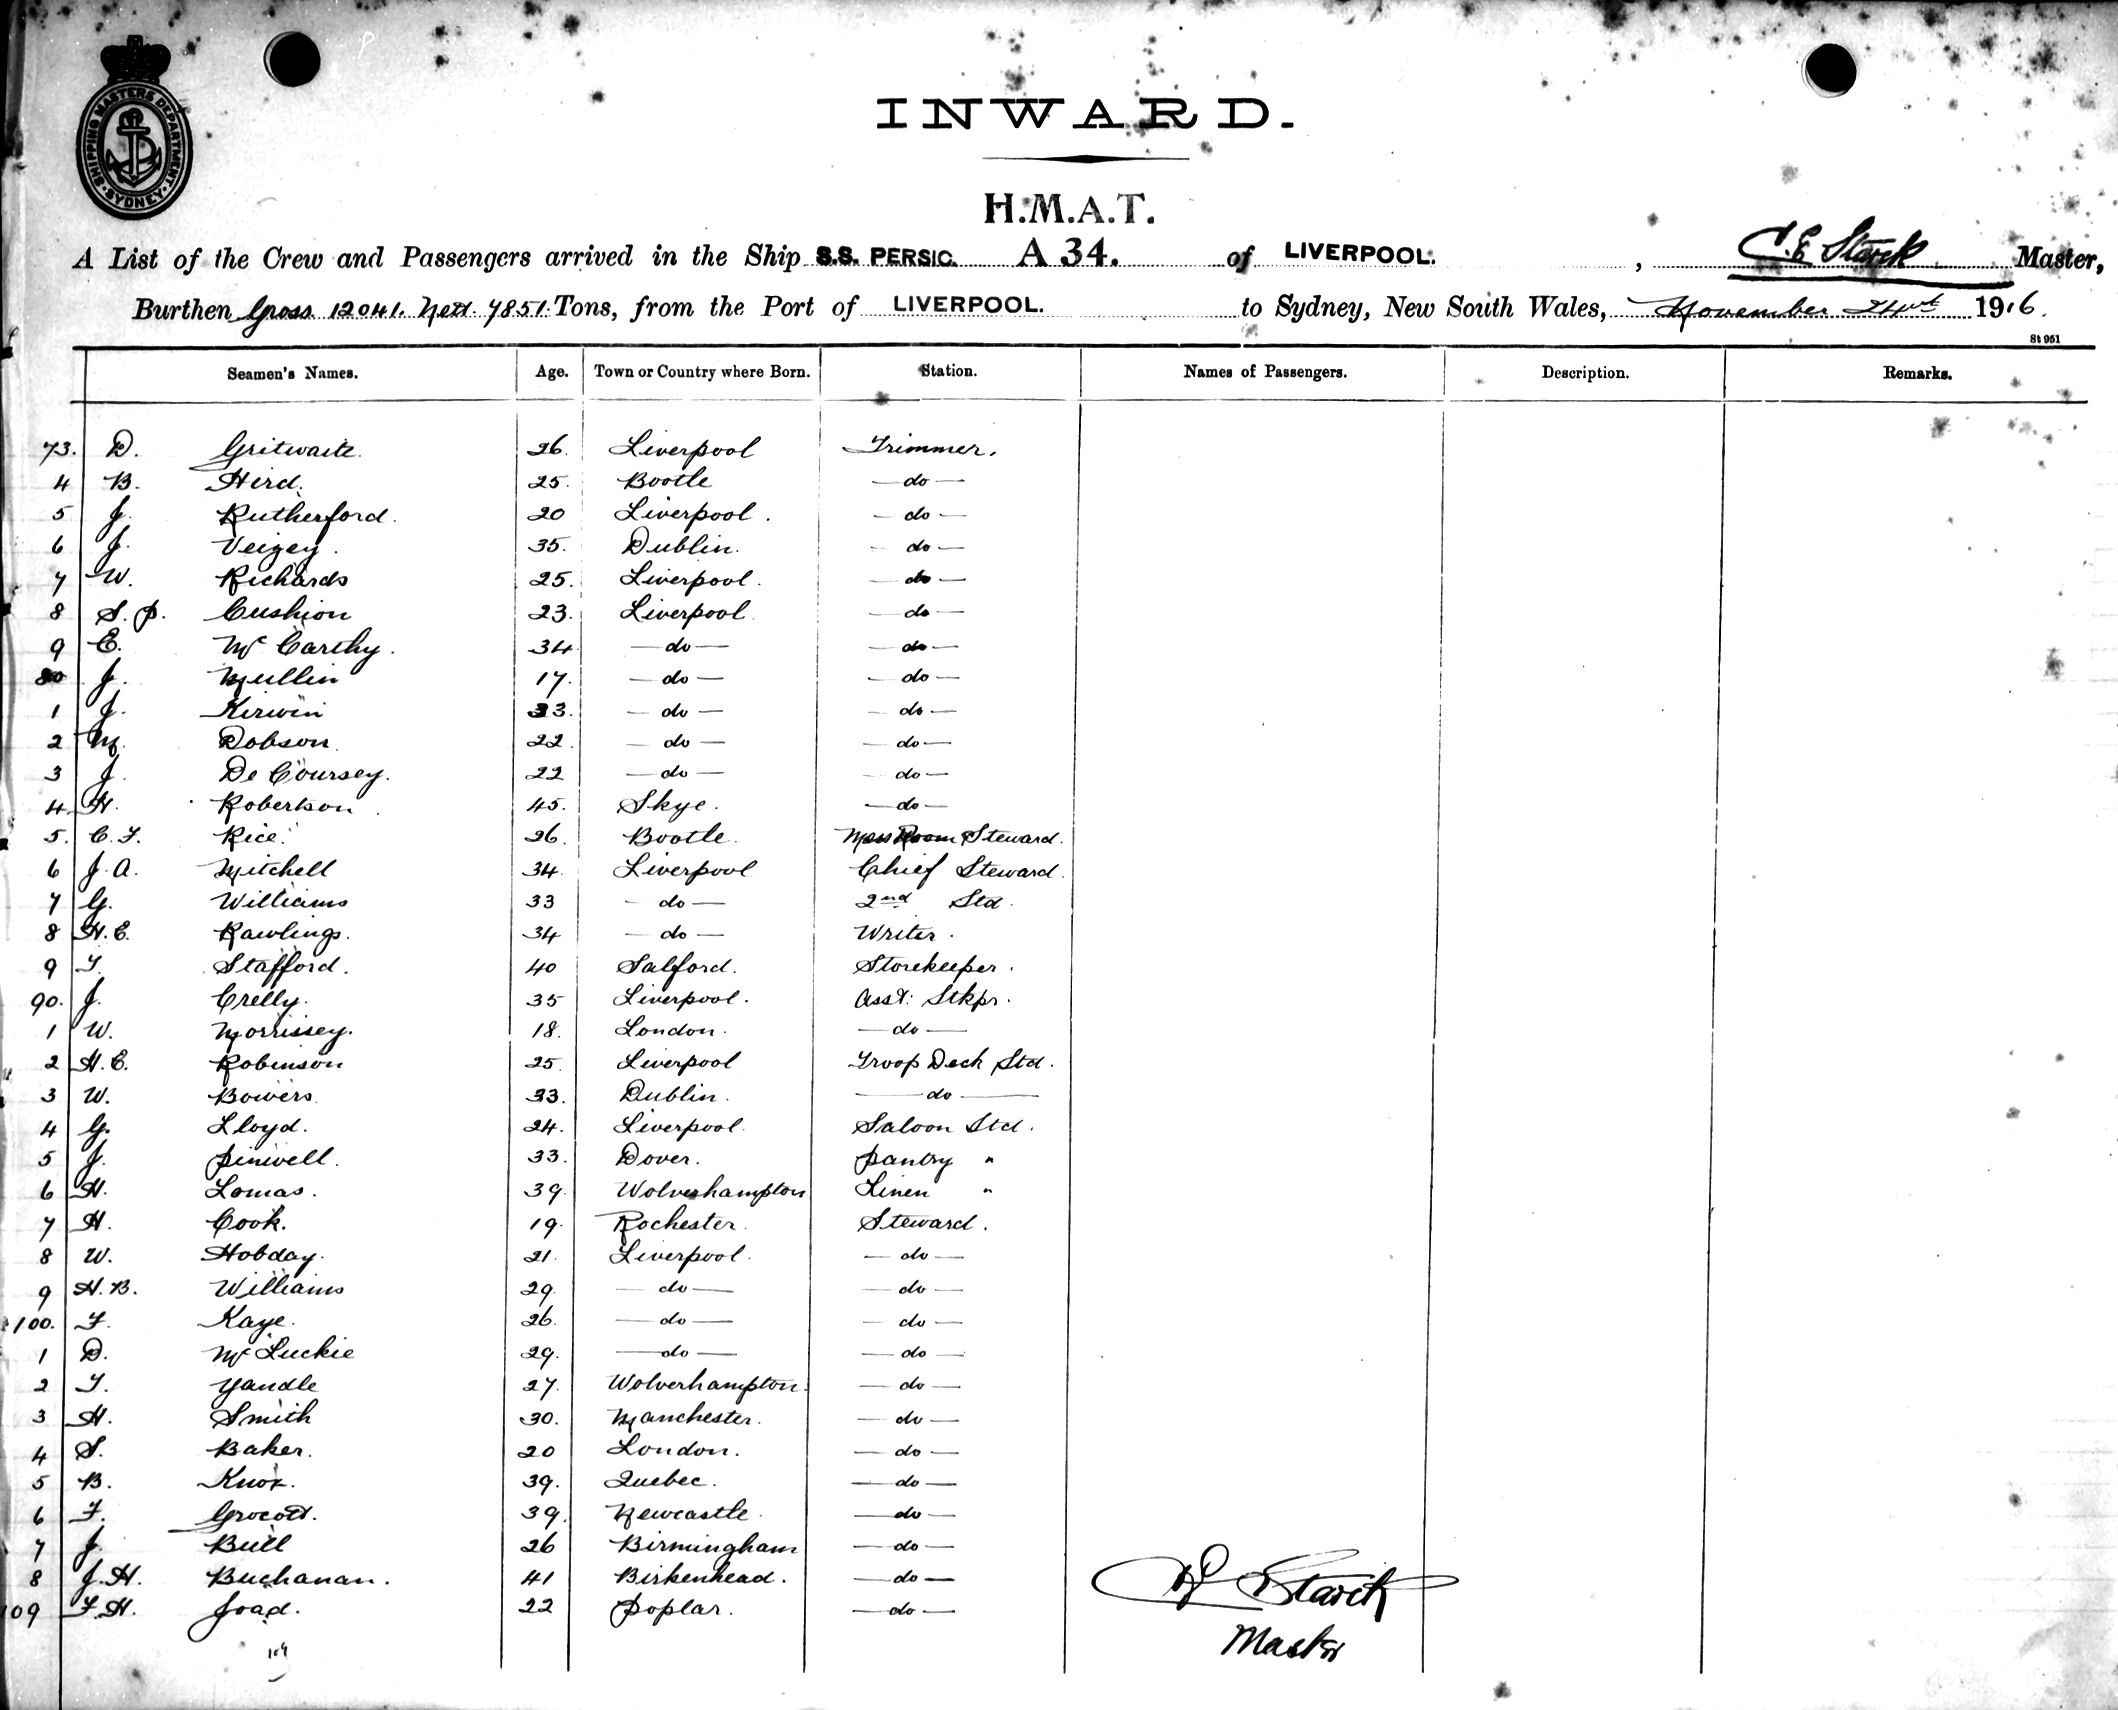 SHIPPING MASTERS DEPARTMENT
SYDNEY
INWARD.
H.M.A.T.
A List of the Crew and Passengers arrived in the Ship S.S. PERSIC. A 34. of LIVERPOOL. , C. E Starck Master,
Burthen Gross 12041. Nett. 7851. Tons, from the Port of LIVERPOOL. to Sydney, New South Wales, November 1916.
St 951
Seamen's Names. Age. Town or Country where Born. Station. Names of Passengers. Description. Remarks.
73. D. Gritwaite. 26. Liverpool Trimmer.
4 B. Hird. 25. Bootle — do —
5 J. Rutherford. 20 Liverpool. — do —
6 J. Veizey. 35. Dublin. — do —
7 W. Richards 25. Liverpool. — do —
8 S. P. Cushion 23. Liverpool — do —
9 E. Mc Carthy. 34 — do — — do —
80 J. Mullin 17. — do — — do —
1 J. Kirwin 33. — do — — do —
2 M. Dobson. 22. — do — — do —
3 J. De Coursey. 22 — do — — do —
4 H. Robertson. 45. Skye. — do —
5. C. F. Rice. 26. Bootle. Mess Room Steward.
6 J. A. Mitchell 34. Liverpool Chief Steward.
7 G. Williams 33 — do — 2nd Std.
8 H. C. Rawlings. 34 — do — Writer.
9 T. Stafford. 40 Salford. Storekeeper.
90. J. Crelly. 35 Liverpool. Asst: Stkpr.
1 W. Morrissey. 18. London. — do —
2 H. C. Robinson 25. Liverpool Troop Deck Std.
3 W. Bowers. 33. Dublin. — do —
4 G. Lloyd. 24. Liverpool. Saloon Std.
5 J. Pinwell. 33. Dover. Pantry "
6 H. Lomas. 39. Wolverhampton Linen "
7 H. Cook. 19. Rochester. Steward.
8 W. Hobday. 21. Liverpool. — do —
9 H. B. Williams 29. — do — — do —
100. F. Kaye. 26. — do — — do —
1 D. Mc Luckie 29. — do — — do —
2 T. Yandle 27. Wolverhampton. — do —
3 H. Smith 30. Manchester. — do —
4 S. Baker. 20 London. — do —
5 B. Knox. 39. Quebec. — do —
6 F. Grocott. 39. Newcastle. — do —
7 J. Bull 26 Birmingham — do —
8 J. H. Buchanan. 41 Birkenhead. — do —
109 F. H. Joad. 22 Poplar. — do —
Starck
Master
109